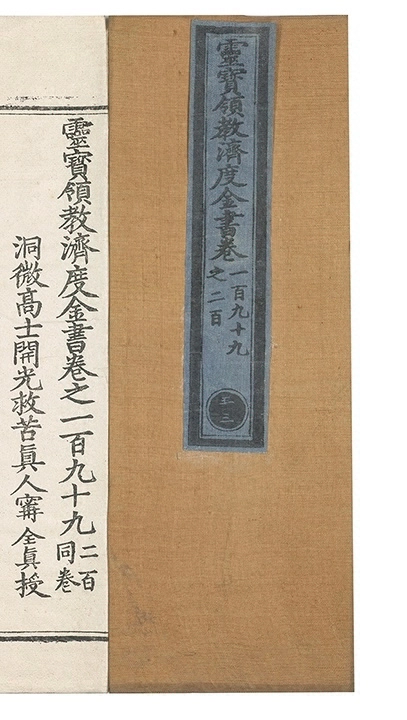 靈寶領教濟度金書卷
一百九十九
之二百
靈寶領教濟度金書卷之一百九十九
二百
同卷
洞微高士開光救苦眞人寗全眞授